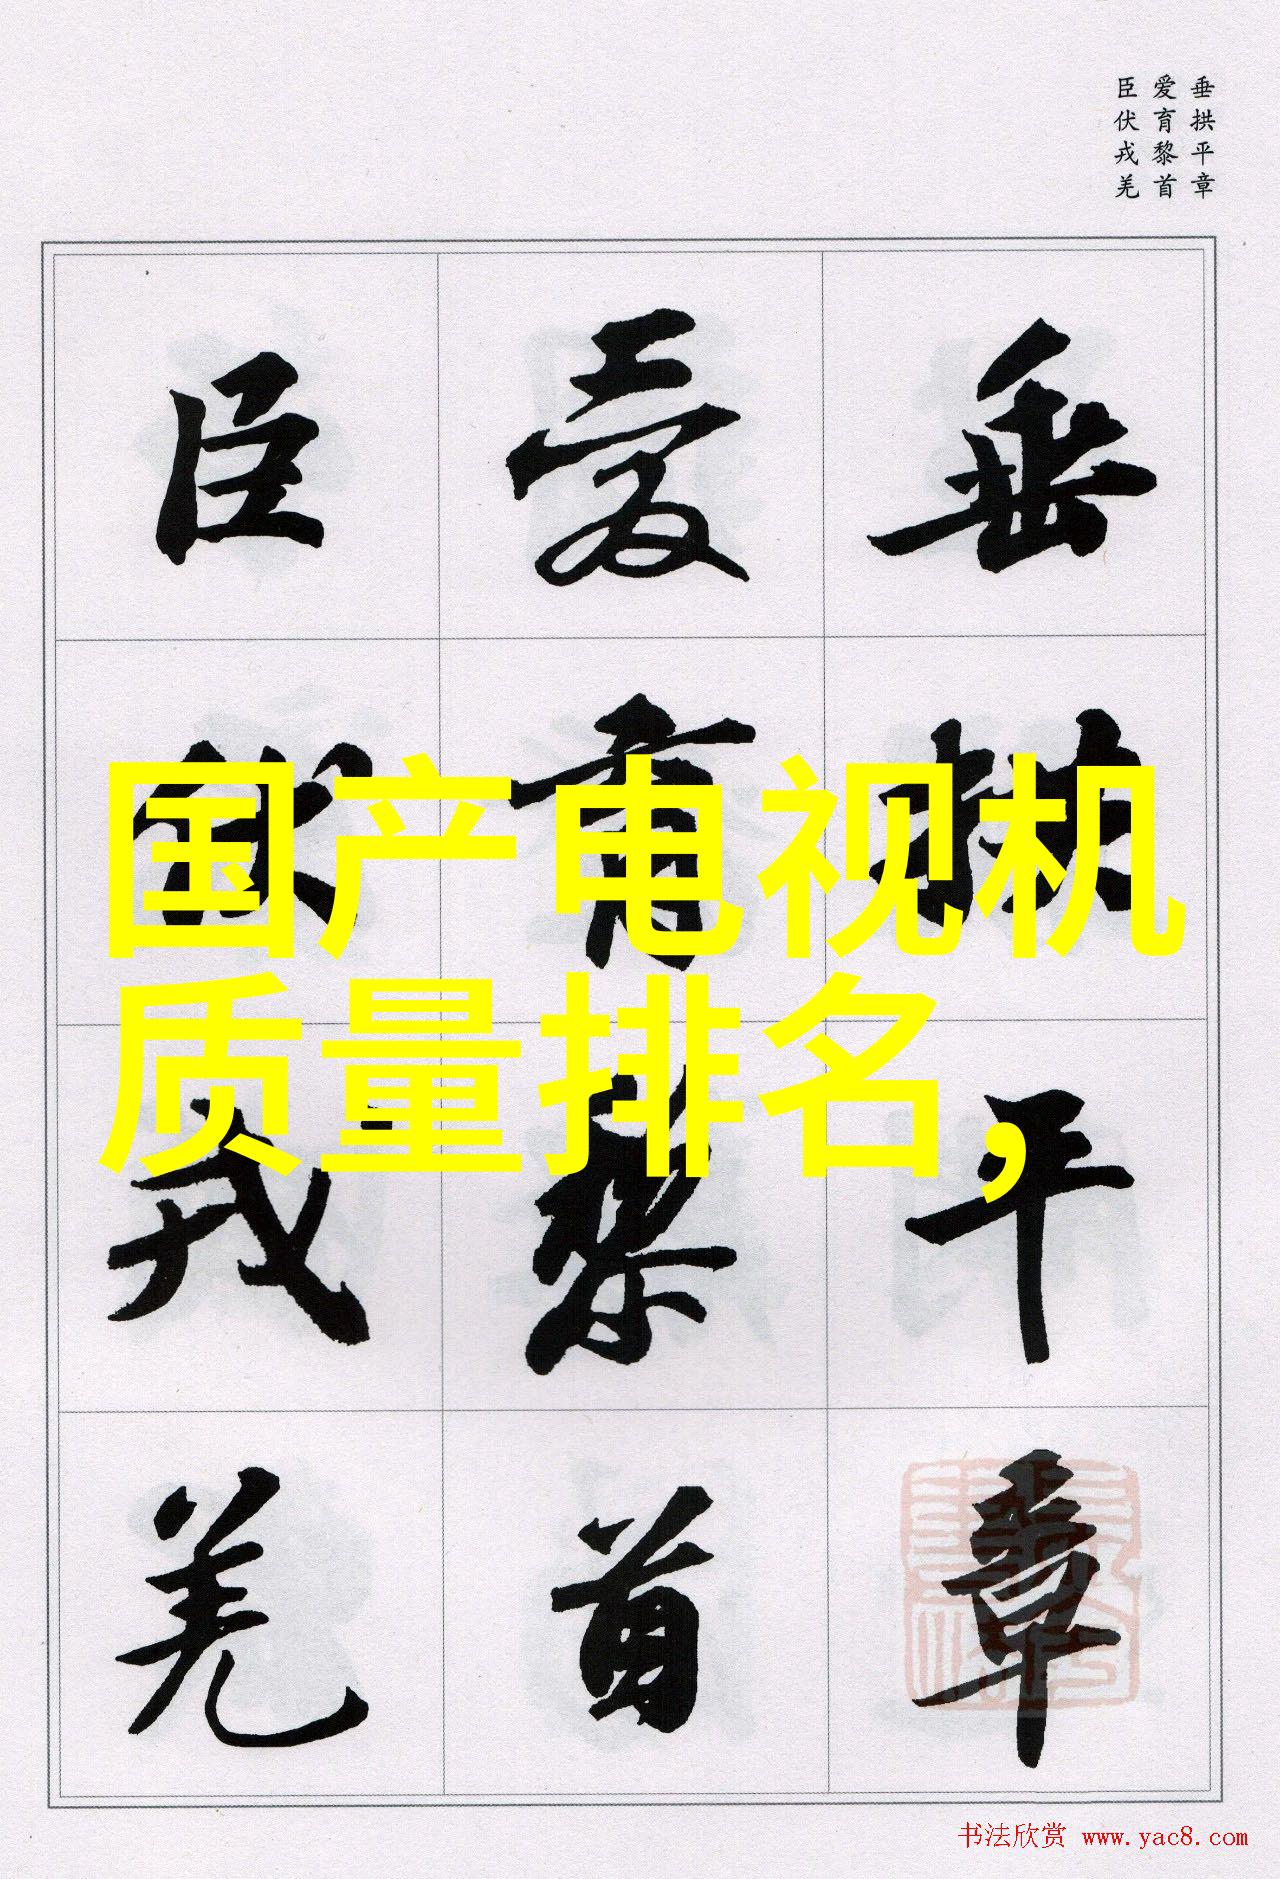 垂拱平章
爱育黎首
臣伏戎羌
垂拱平章
爱育黎首
臣伏戎羌
国产电视机
质量排名,
书法欣赏 www.yac8.com